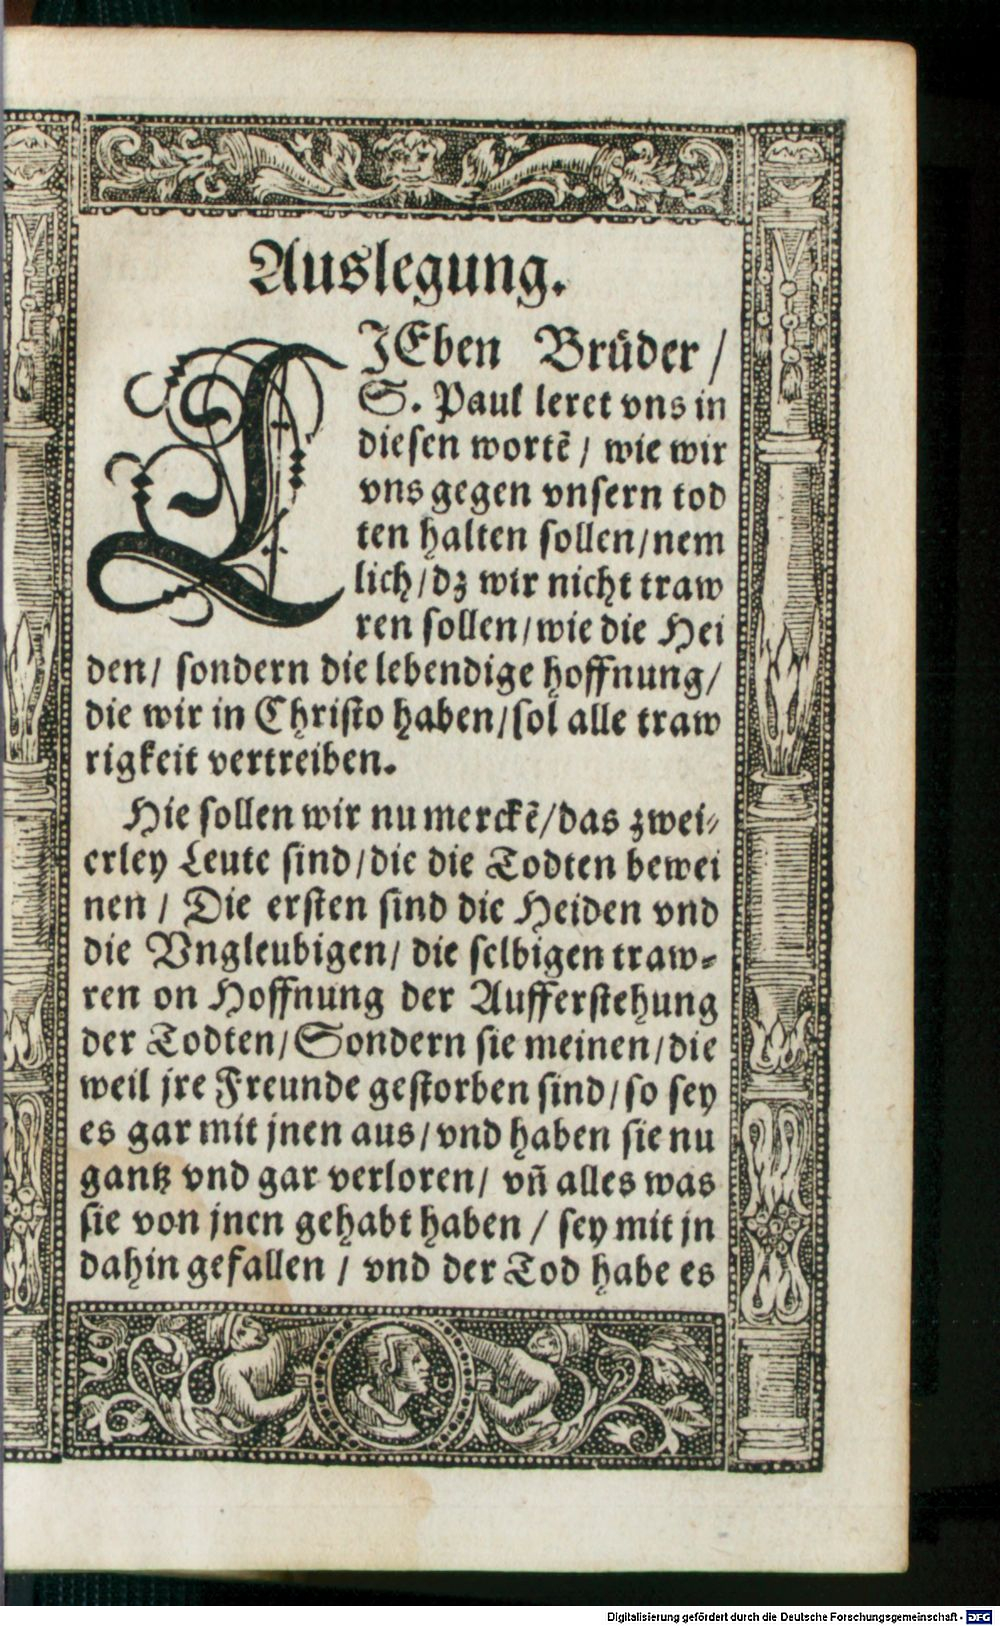 Auslegung.
LIEben Bruͤder /
S. Paul leret vns in
diesen wortẽ / wie wir
vns gegen vnsern tod
ten halten sollen/nem
lich/dz wir nicht traw
ren sollen/wie die Hei
den/ sondern die lebendige hoffnung/
die wir in Christo haben/sol alle traw
rigkeit vertreiben.
Hie sollen wir nu merckẽ/das zwei⸗
erley Leute sind/die die Todten bewei
nen / Die ersten sind die Heiden vnd
die Vngleubigen/ die selbigen traw⸗
ren on Hoffnung der Aufferstehung
der Todten/Sondern sie meinen/die
weil jre Freunde gestorben sind/so sey
es gar mit jnen aus/vnd haben sie nu
gantz vnd gar verloren/ vñ alles was
sie von jnen gehabt haben / sey mit jn
dahin gefallen / vnd der Tod habe es
Digitalisierung gefördert durch die Deutsche Forschungsgemeinschaft - DFG